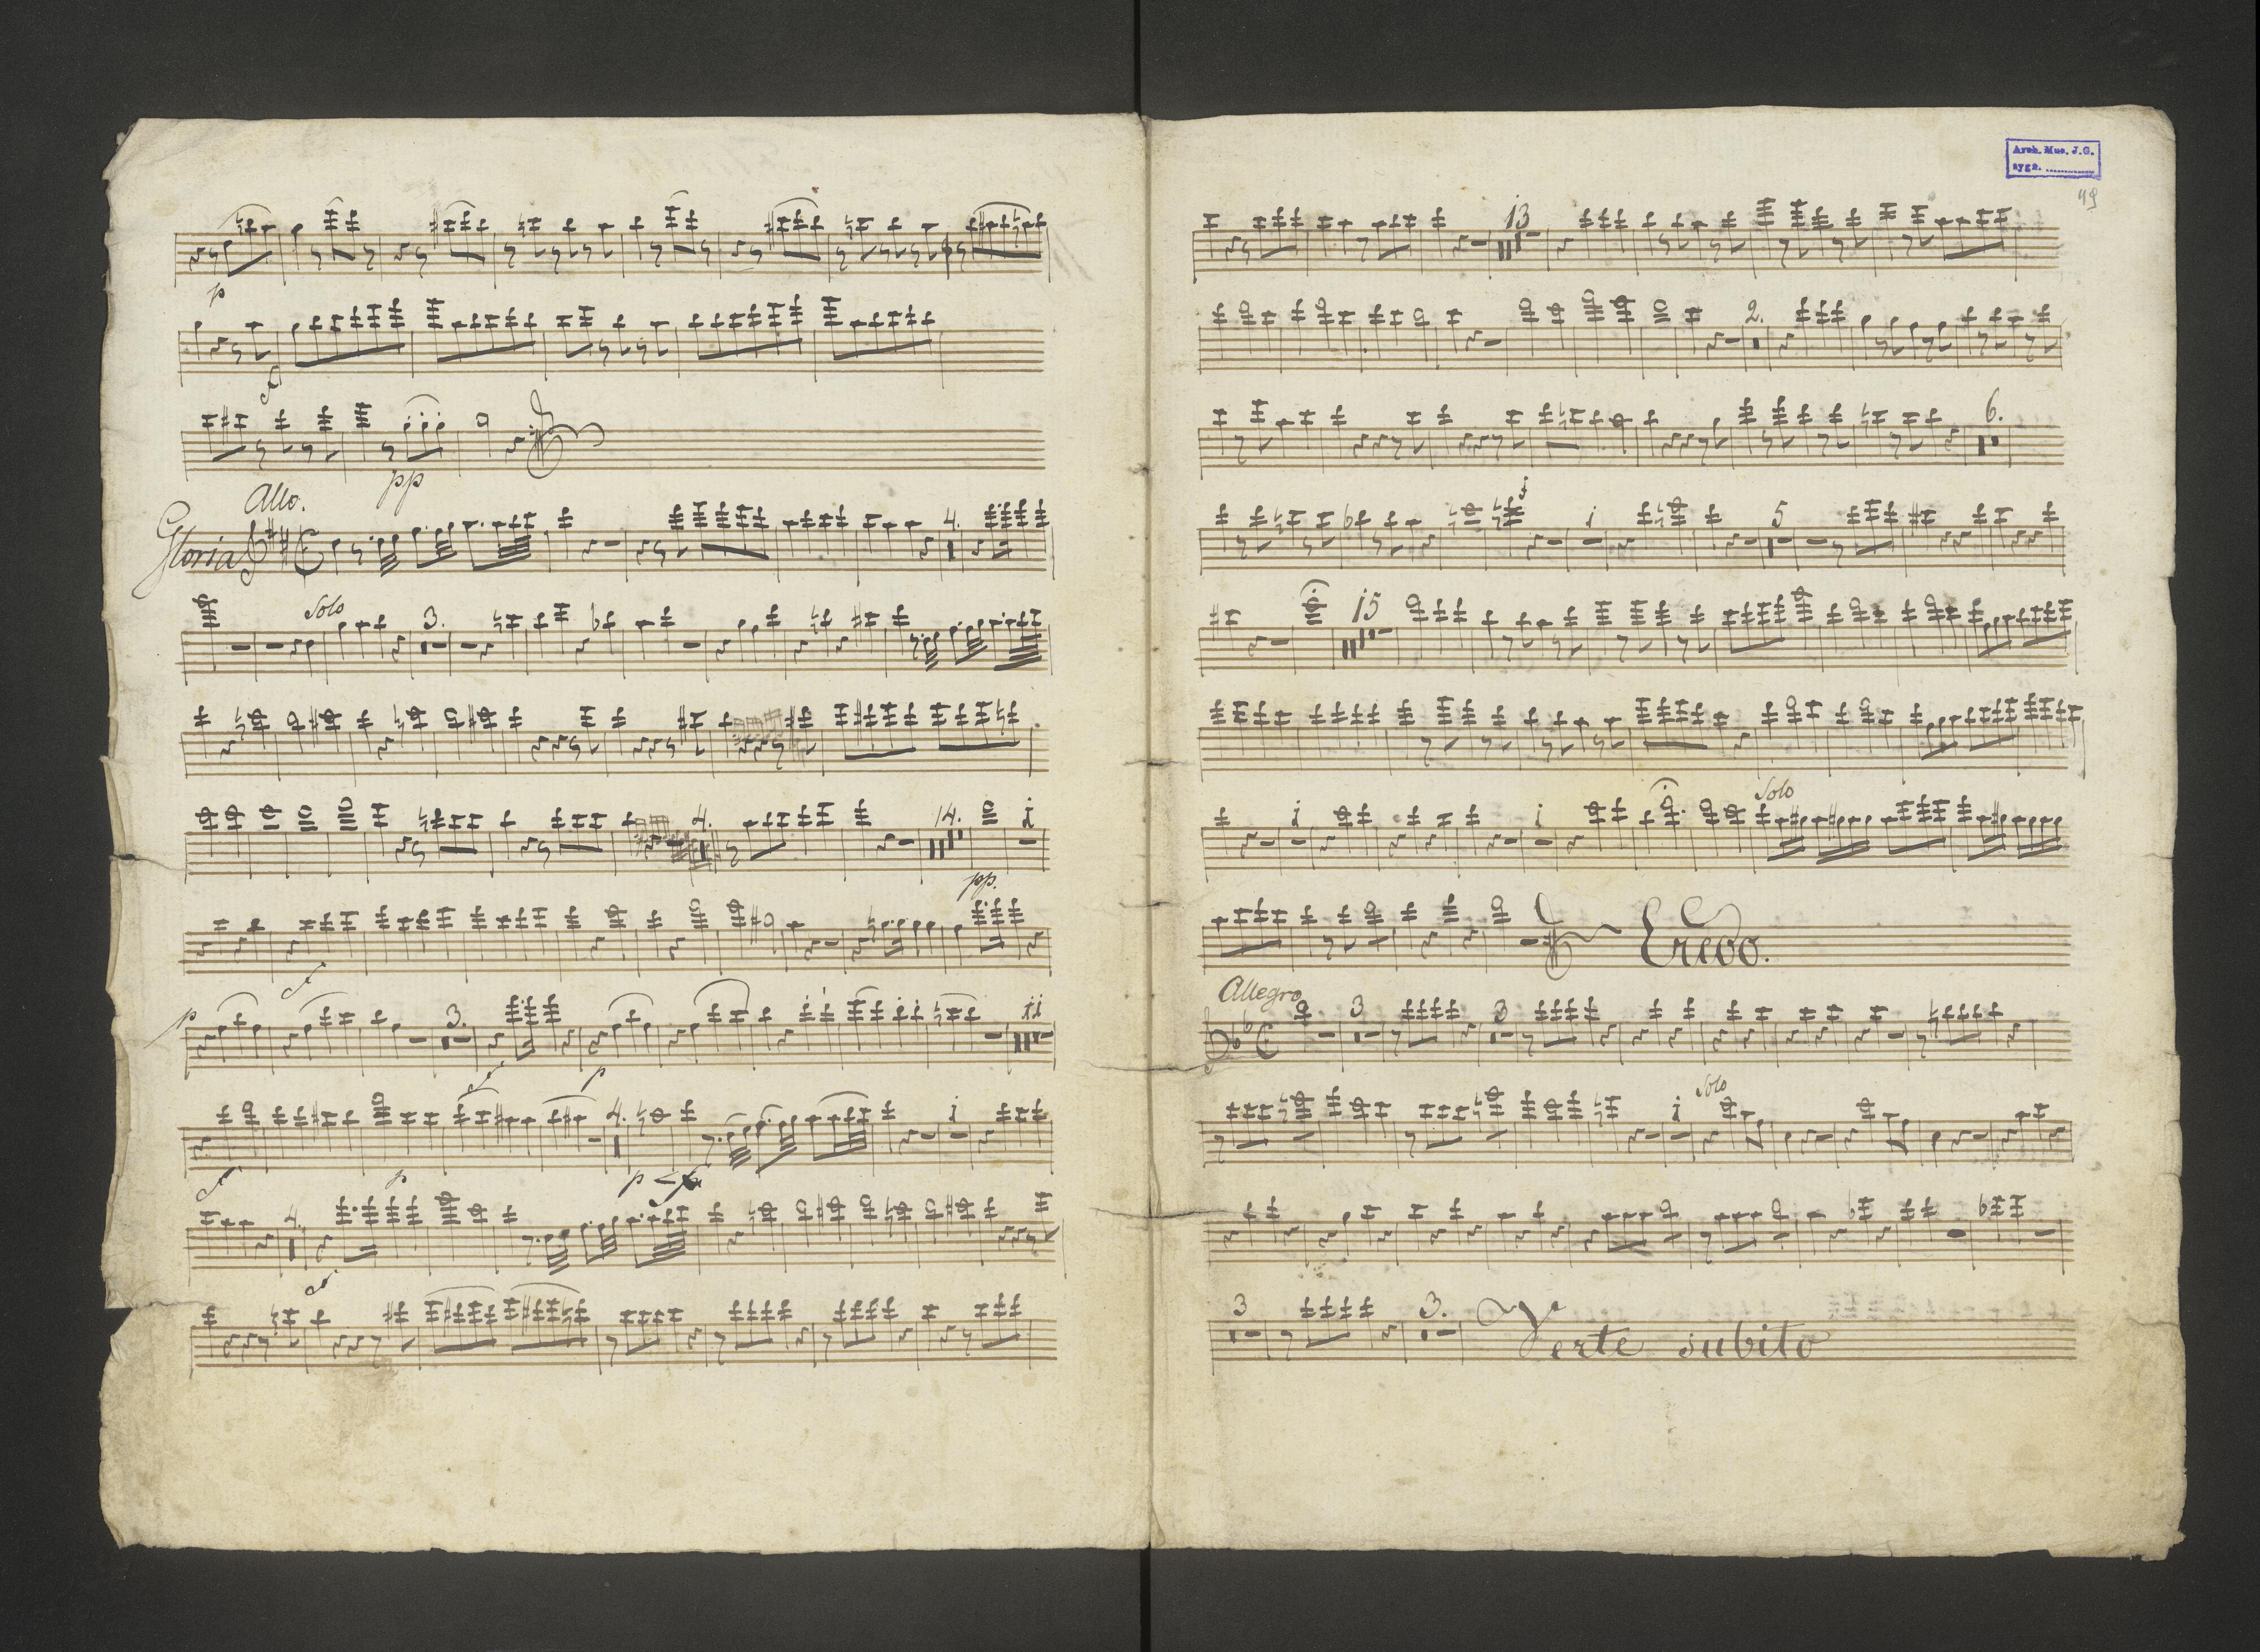 p
pp
Allo.
Gloria
4.
Solo
3.
4.
14.
i
pp.
p
3.
ii
p
4.
i
p
p
4.
Arch. Mus. J.G.
sygn. ............
49
13
2.
6.
i
5
15
i
i
Solo
Credo.
Allegro
3
3
i
Solo
3
3.
Verte subito